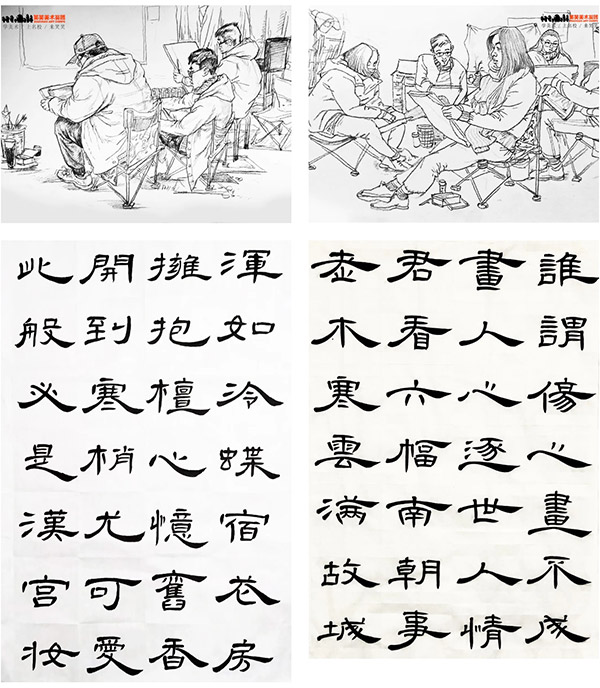 渾如冷蝶宿花房
擁抱檀心憶舊香
開到寒梢尤可愛
此般必是漢宮妝
誰謂傷心畫不成
畫人心逐世人情
君看六幅南朝事
老木寒雲滿故城